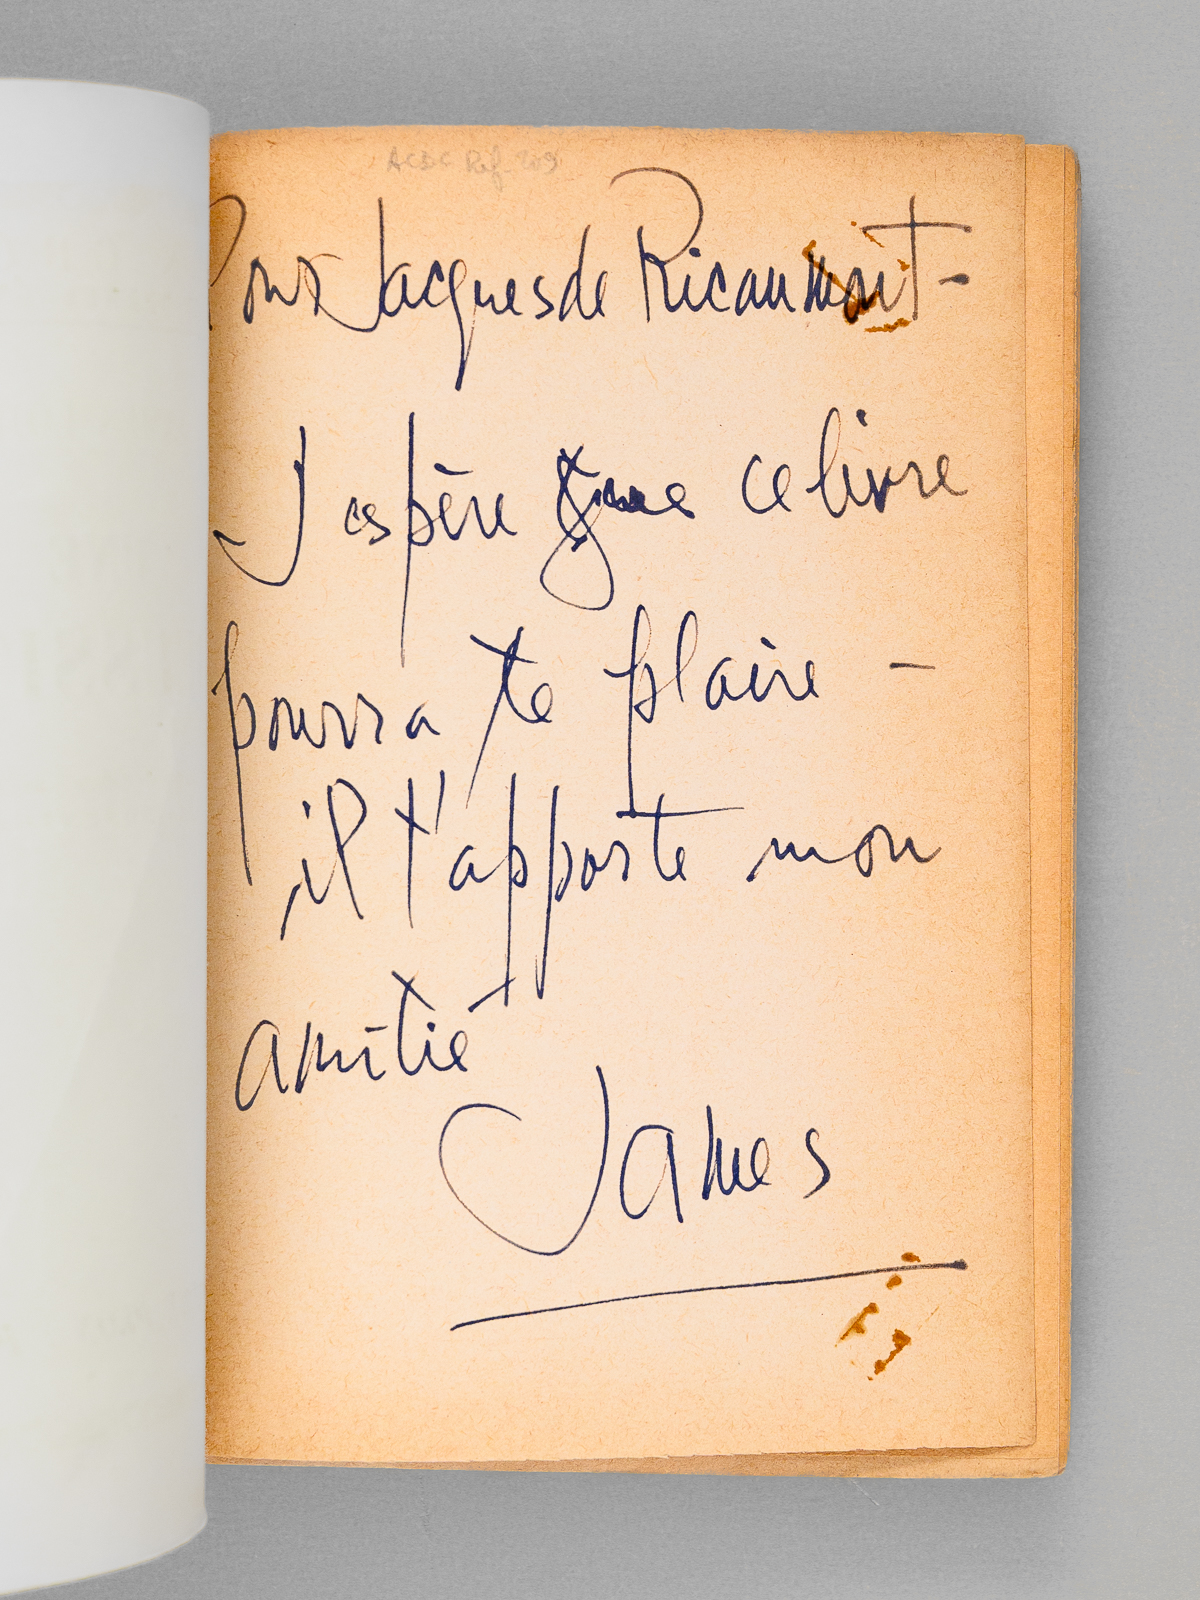 Pour Jacques de Ricaumont -
J'espère que ce livre
pourra te plaire -
il t'apporte mon
amitié
James